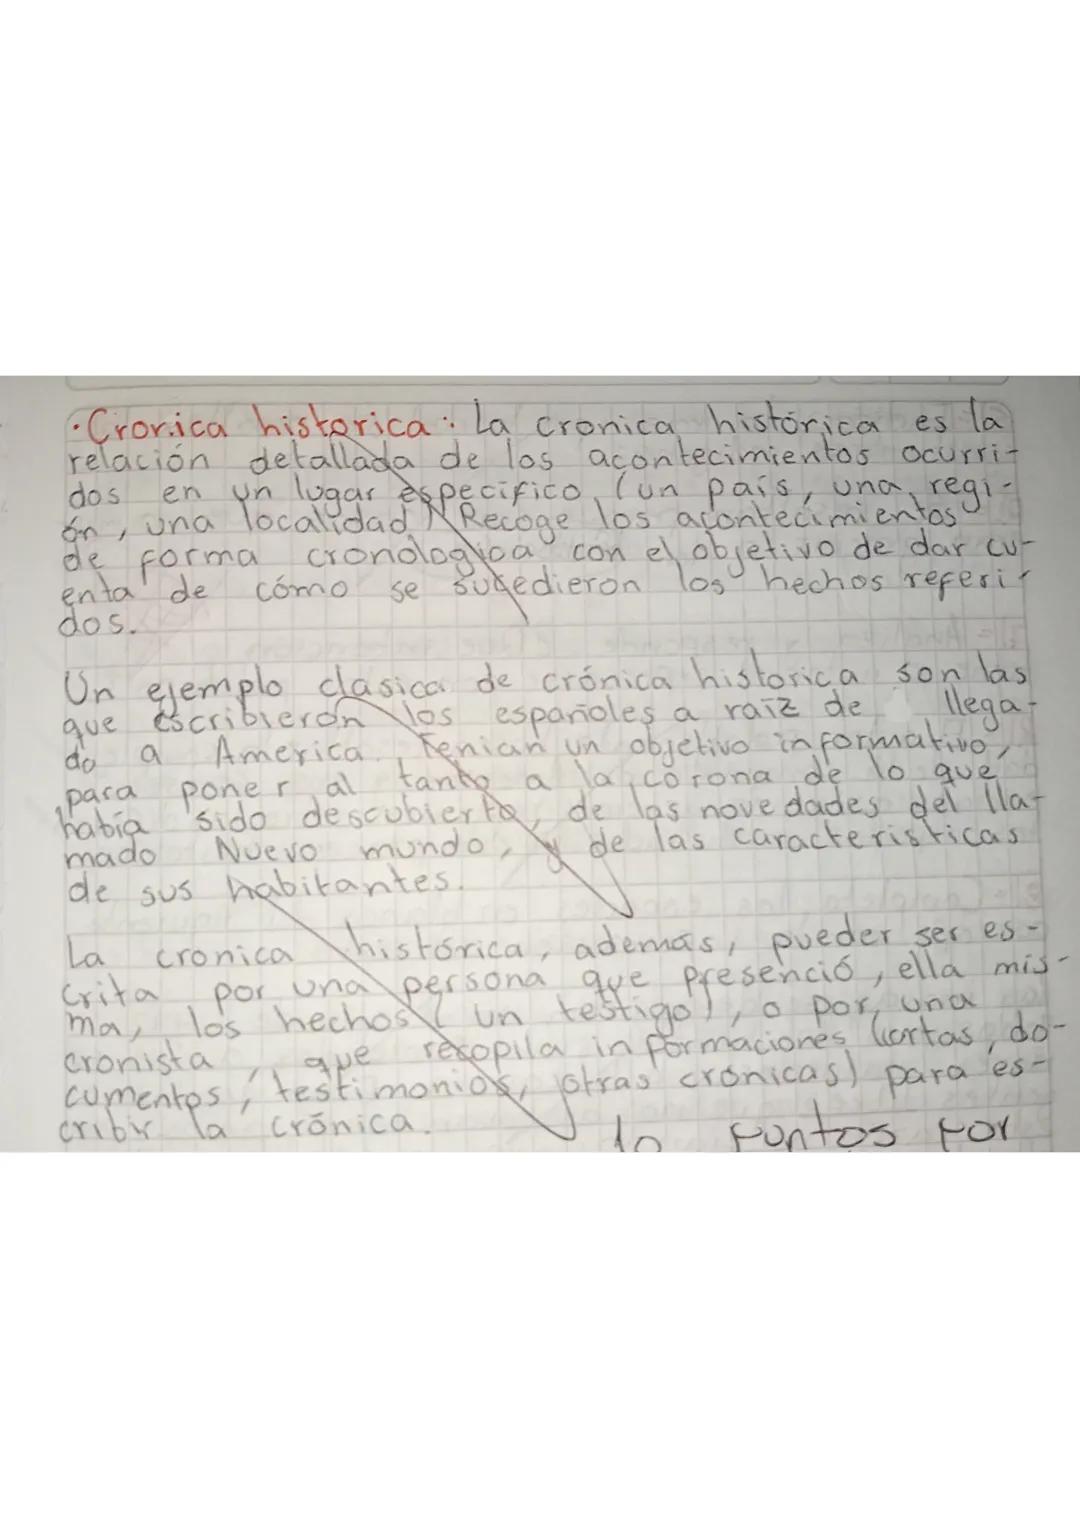 ·Cronica historica: La cronica histórica es la
relación detallada de los acontecimientos ocurri-
dos en un lugar especifico, (un país, una regi-
ón, una localidad) Recoge los acontecimientos
de forma cronologica con el objetivo de dar cu-
enta de cómo se sucedieron los hechos referi-
dos.
Un ejemplo clasica de crónica historica son las
que escribieron los españoles a raíz de llega-
do a America. Tenian un objetivo informativo,
para poner al tanto a la corona de lo que
había sido descubierto, de las novedades del lla-
mado Nuevo mundo, y de las caracteristicas
de sus habitantes.
La cronica histórica, además, pueder ser es-
crita por una persona que presenció, ella mis-
ma, los hechos (un testigo), o por una
cronista, que recopila informaciones (cartas, do-
cumentos, testimonios, otras crónicas) para es-
cribir la crónica.
10 Puntos Por